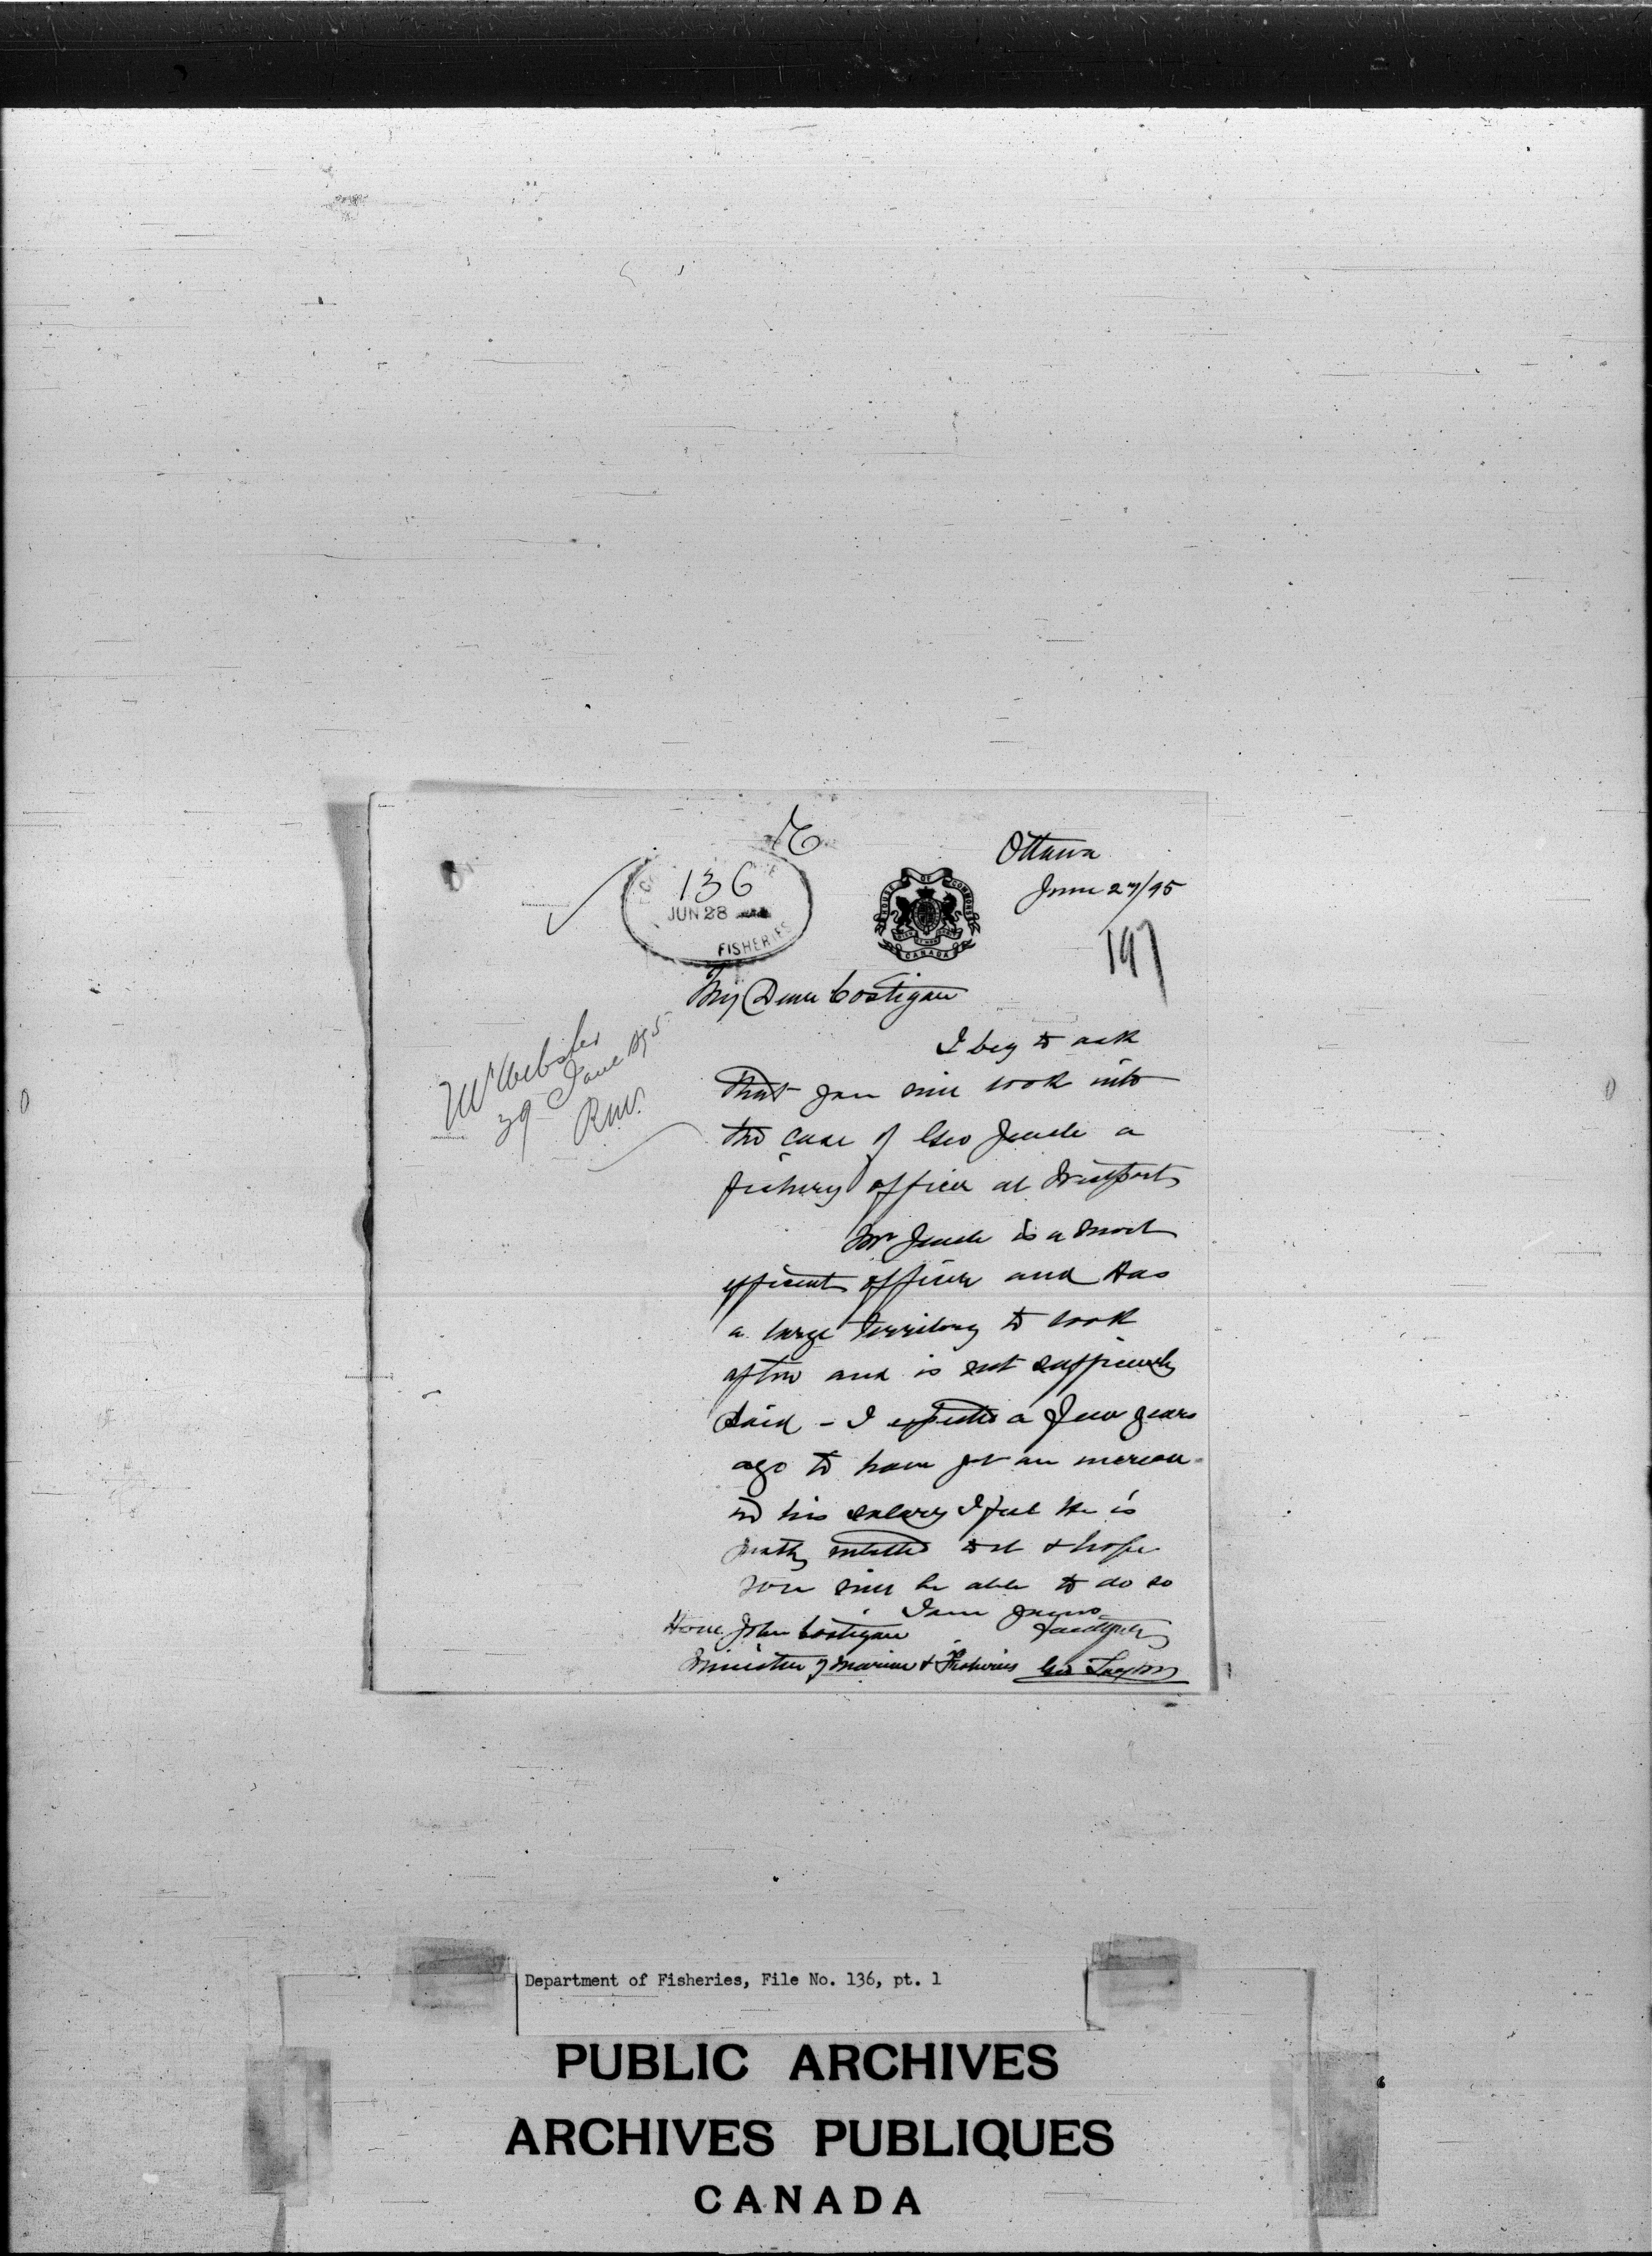 136
JUN 28
FISHERIES
HOUSE OF COMMONS
CANADA
Ottawa
June 27/95
197
My Dear Costigan
Mr Webster
29 June 1895
R.N.V.
I beg to ask
that you will look into
the case of Geo a
fishery officer at Westport
Mr is a most
efficient officer and has
a large territory to look
after and is not sufficiently
paid - I expected a few years
ago to have got an increase
in his salary I feel he is
justly entitled to it & hope
you will be able to do so
I am yours
faithfully
Geo Taylor
Hon. John Costigan
Minister of Marine & Fisheries
Department of Fisheries, File No. 136, pt. 1
PUBLIC ARCHIVES
ARCHIVES PUBLIQUES
CANADA